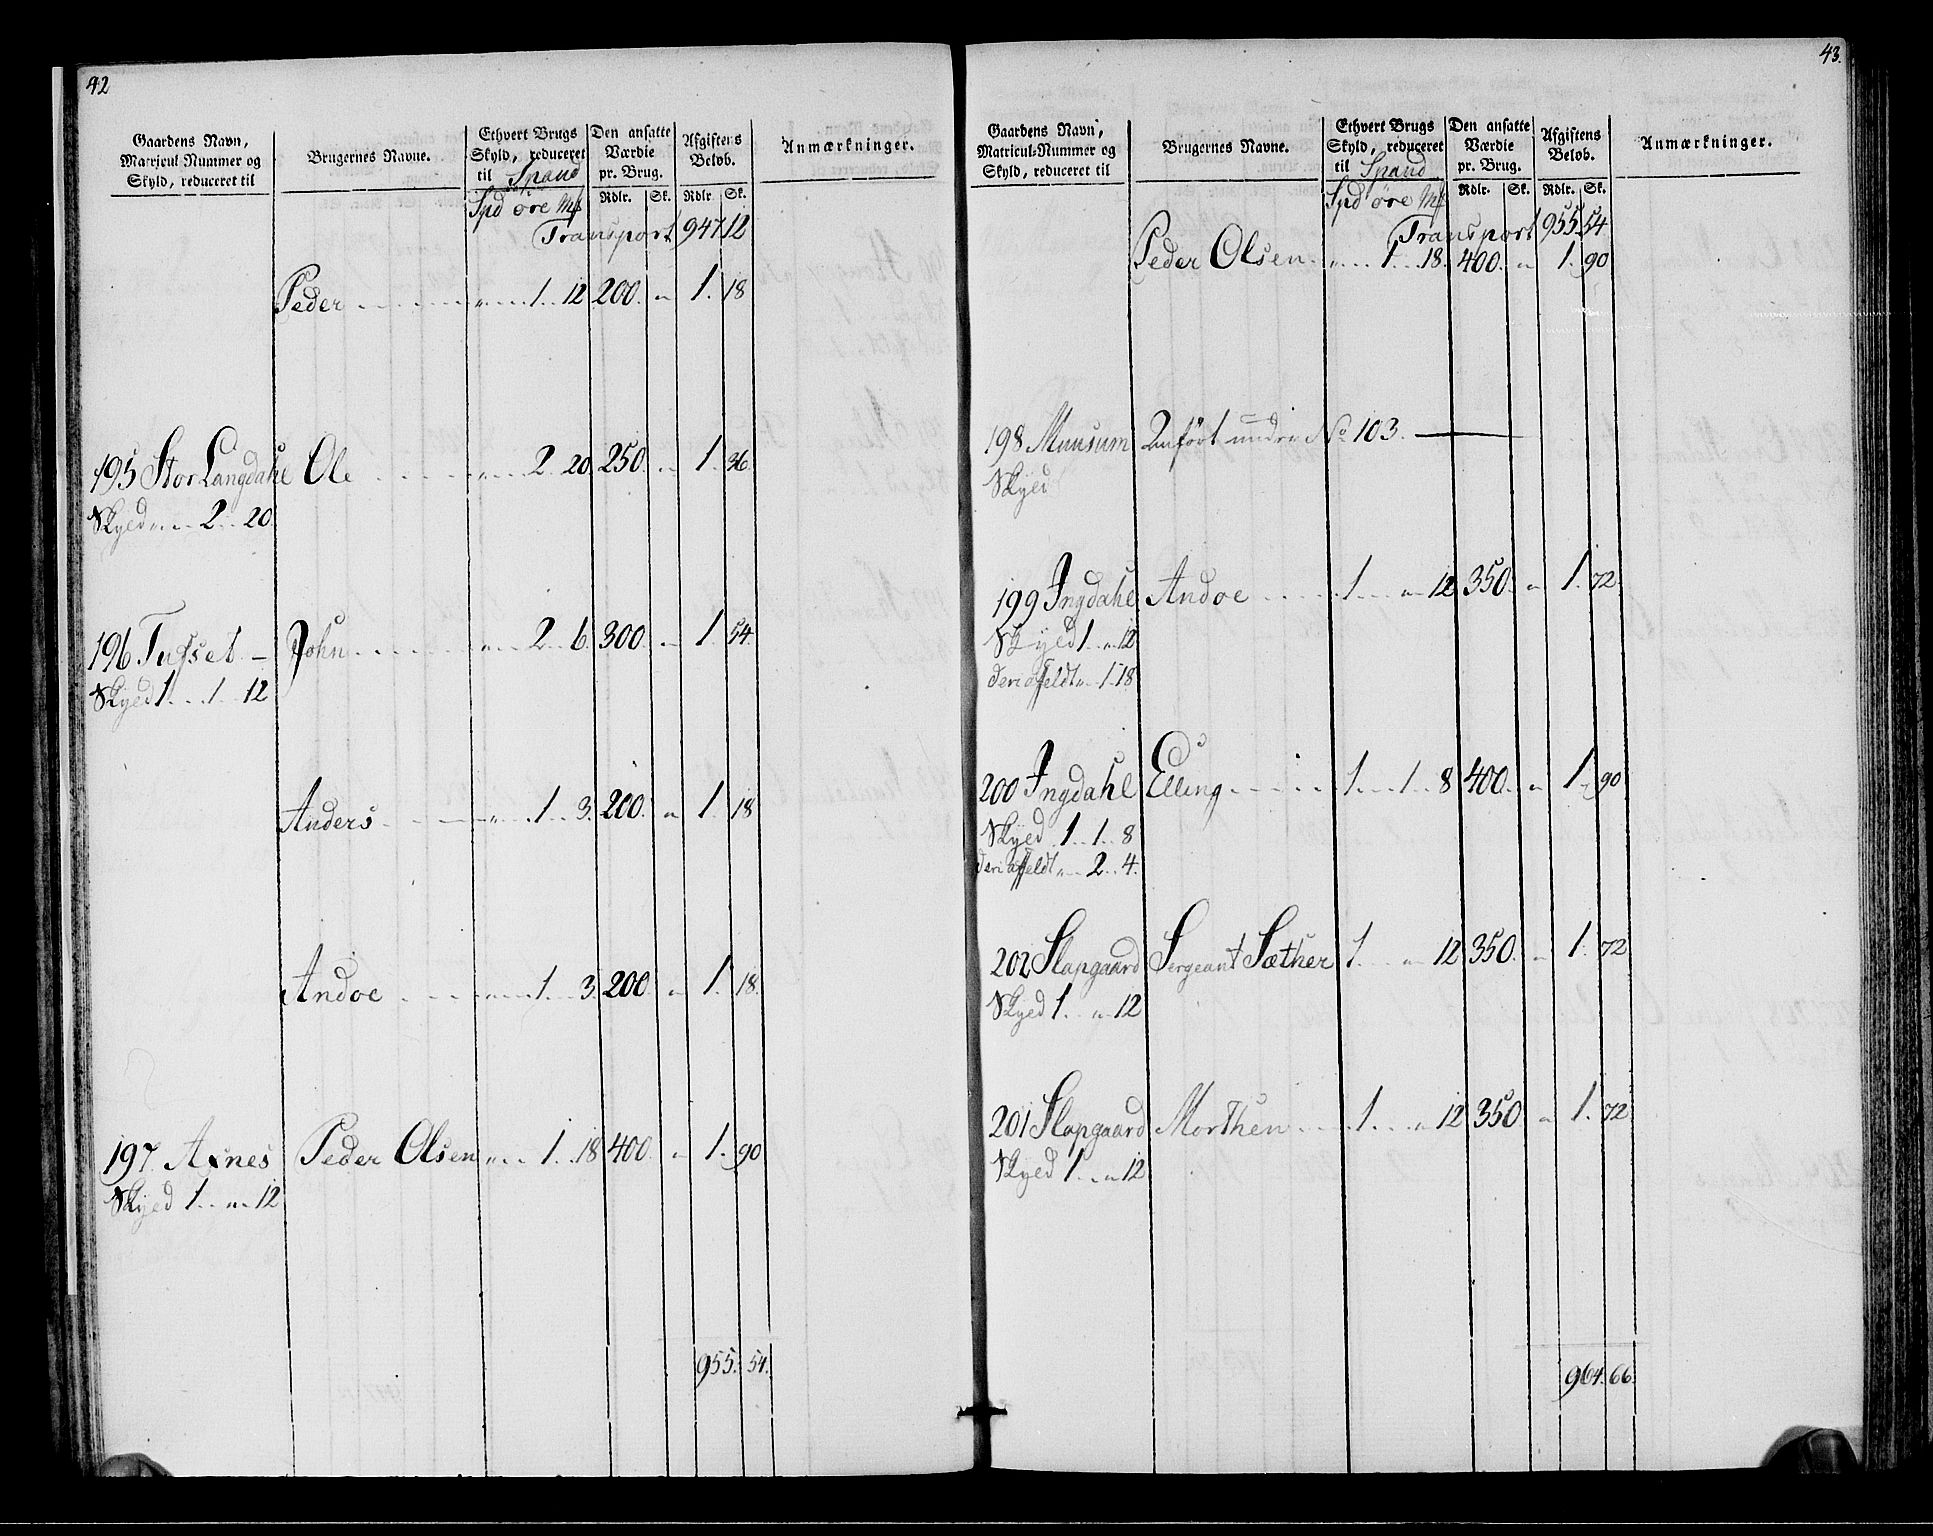 42
Gaardens Navn, Matricul-Nummer og Skyld, reduceret til | Brugernes Navne. | Ethvert Brugs Skyld, reduceret til Spand | Den ansatte Værdie pr. Brug. | Afgiftens Beløb. | Anmærkninger.
Spd øre Mkl | Rdlr. | Sk. | Rdlr. | Sk.
Transport 947 12
Peder " 1 12 200 " 1 18
195 Stor Langdahl Ole " 2 20 250 " 1 36
Skyld " 2 20
196 Tufset John " 2 6 300 " 1 54
Skyed 1 1 12
Anders " 1 3 200 " 1 18
Andoe " 1 3 200 " 1 18
197 Axnes Peder Olsen " 1 18 400 " 1 90
Skyed 1 " 12
955 54
43.
Gaardens Navn, Matricul-Nummer og Skyld, reduceret til | Brugernes Navne. | Ethvert Brugs Skyld, reduceret til Spand | Den ansatte Værdie pr. Brug. | Afgiftens Beløb. | Anmærkninger.
Spd øre Mkl | Rdlr. | Sk. | Rdlr. | Sk.
Transport 955 54
Peder Olsen " 1 18 400 " 1 90
198 Muusum Anført under No 103.
Skyed
199 Ingdahl Andoe 1 " 12 350 " 1 72
Skyed 1 " 12
deri affeldt " 1 18
200 Ingdahl Elling 1 1 8 400 " 1 90
Skyed 1 1 8
deri affeldt " 2 4.
202 Slapgaard Sergeant Sæther 1 " 12 350 " 1 72
Skyed 1 " 12
201 Slapgaard Morthen 1 " 12 350 " 1 72
Skyed 1 " 12
964 66